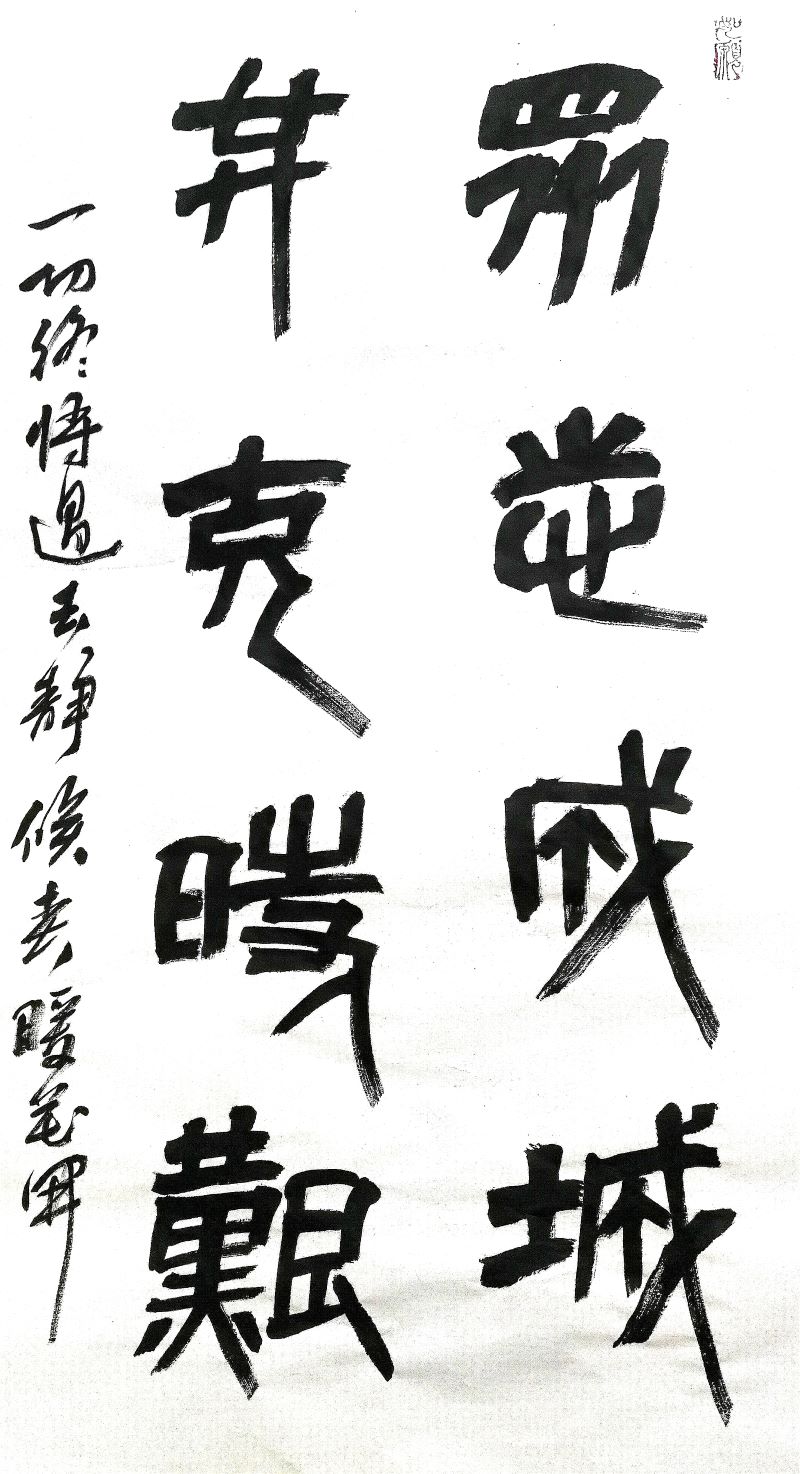 眾志成城
共克時艱
一切終將過去靜候春暖花開